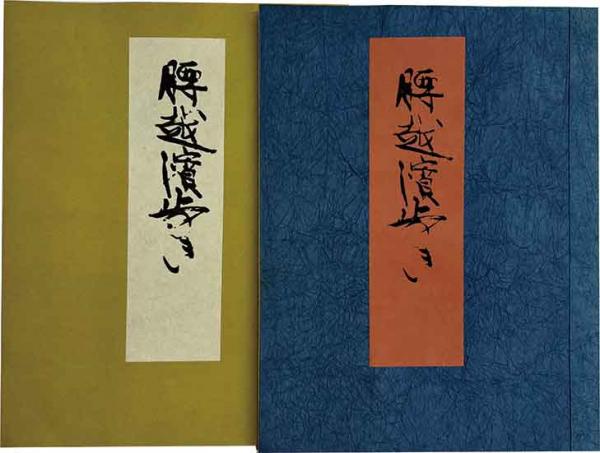 腰越濱歩き
腰越濱歩き